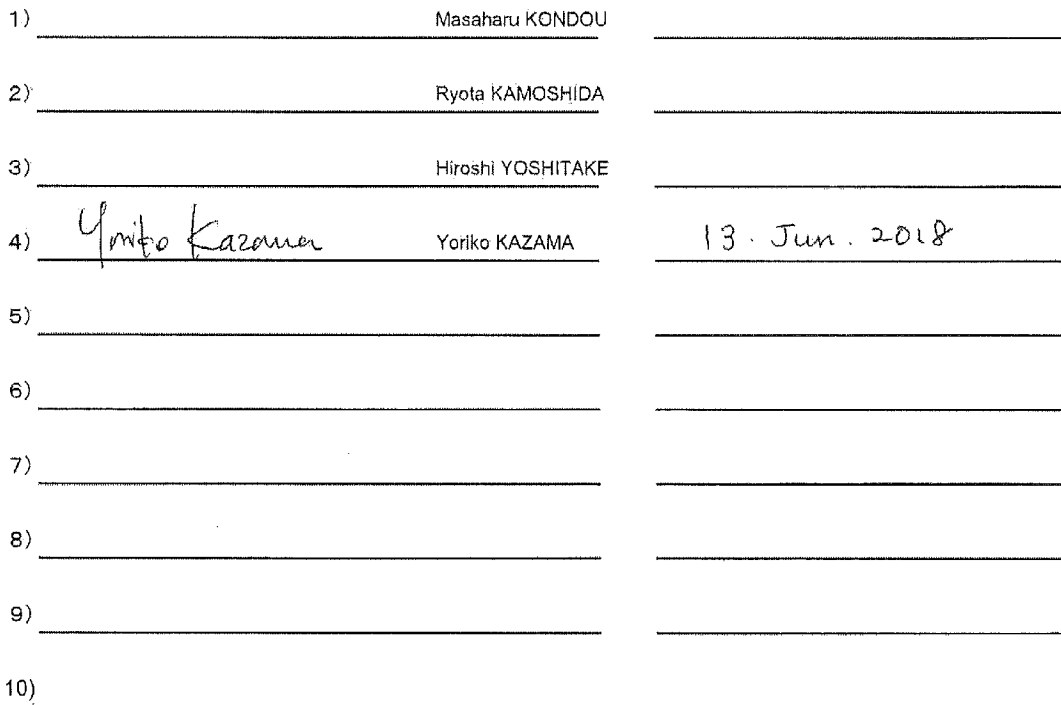 1) Masaharu KONDOU
2) Ryota KAMOSHIDA
3) Hiroshi YOSHITAKE
4) Yoriko Kazama Yoriko KAZAMA 13. Jun. 2018
5)
6)
7)
8)
9)
10)